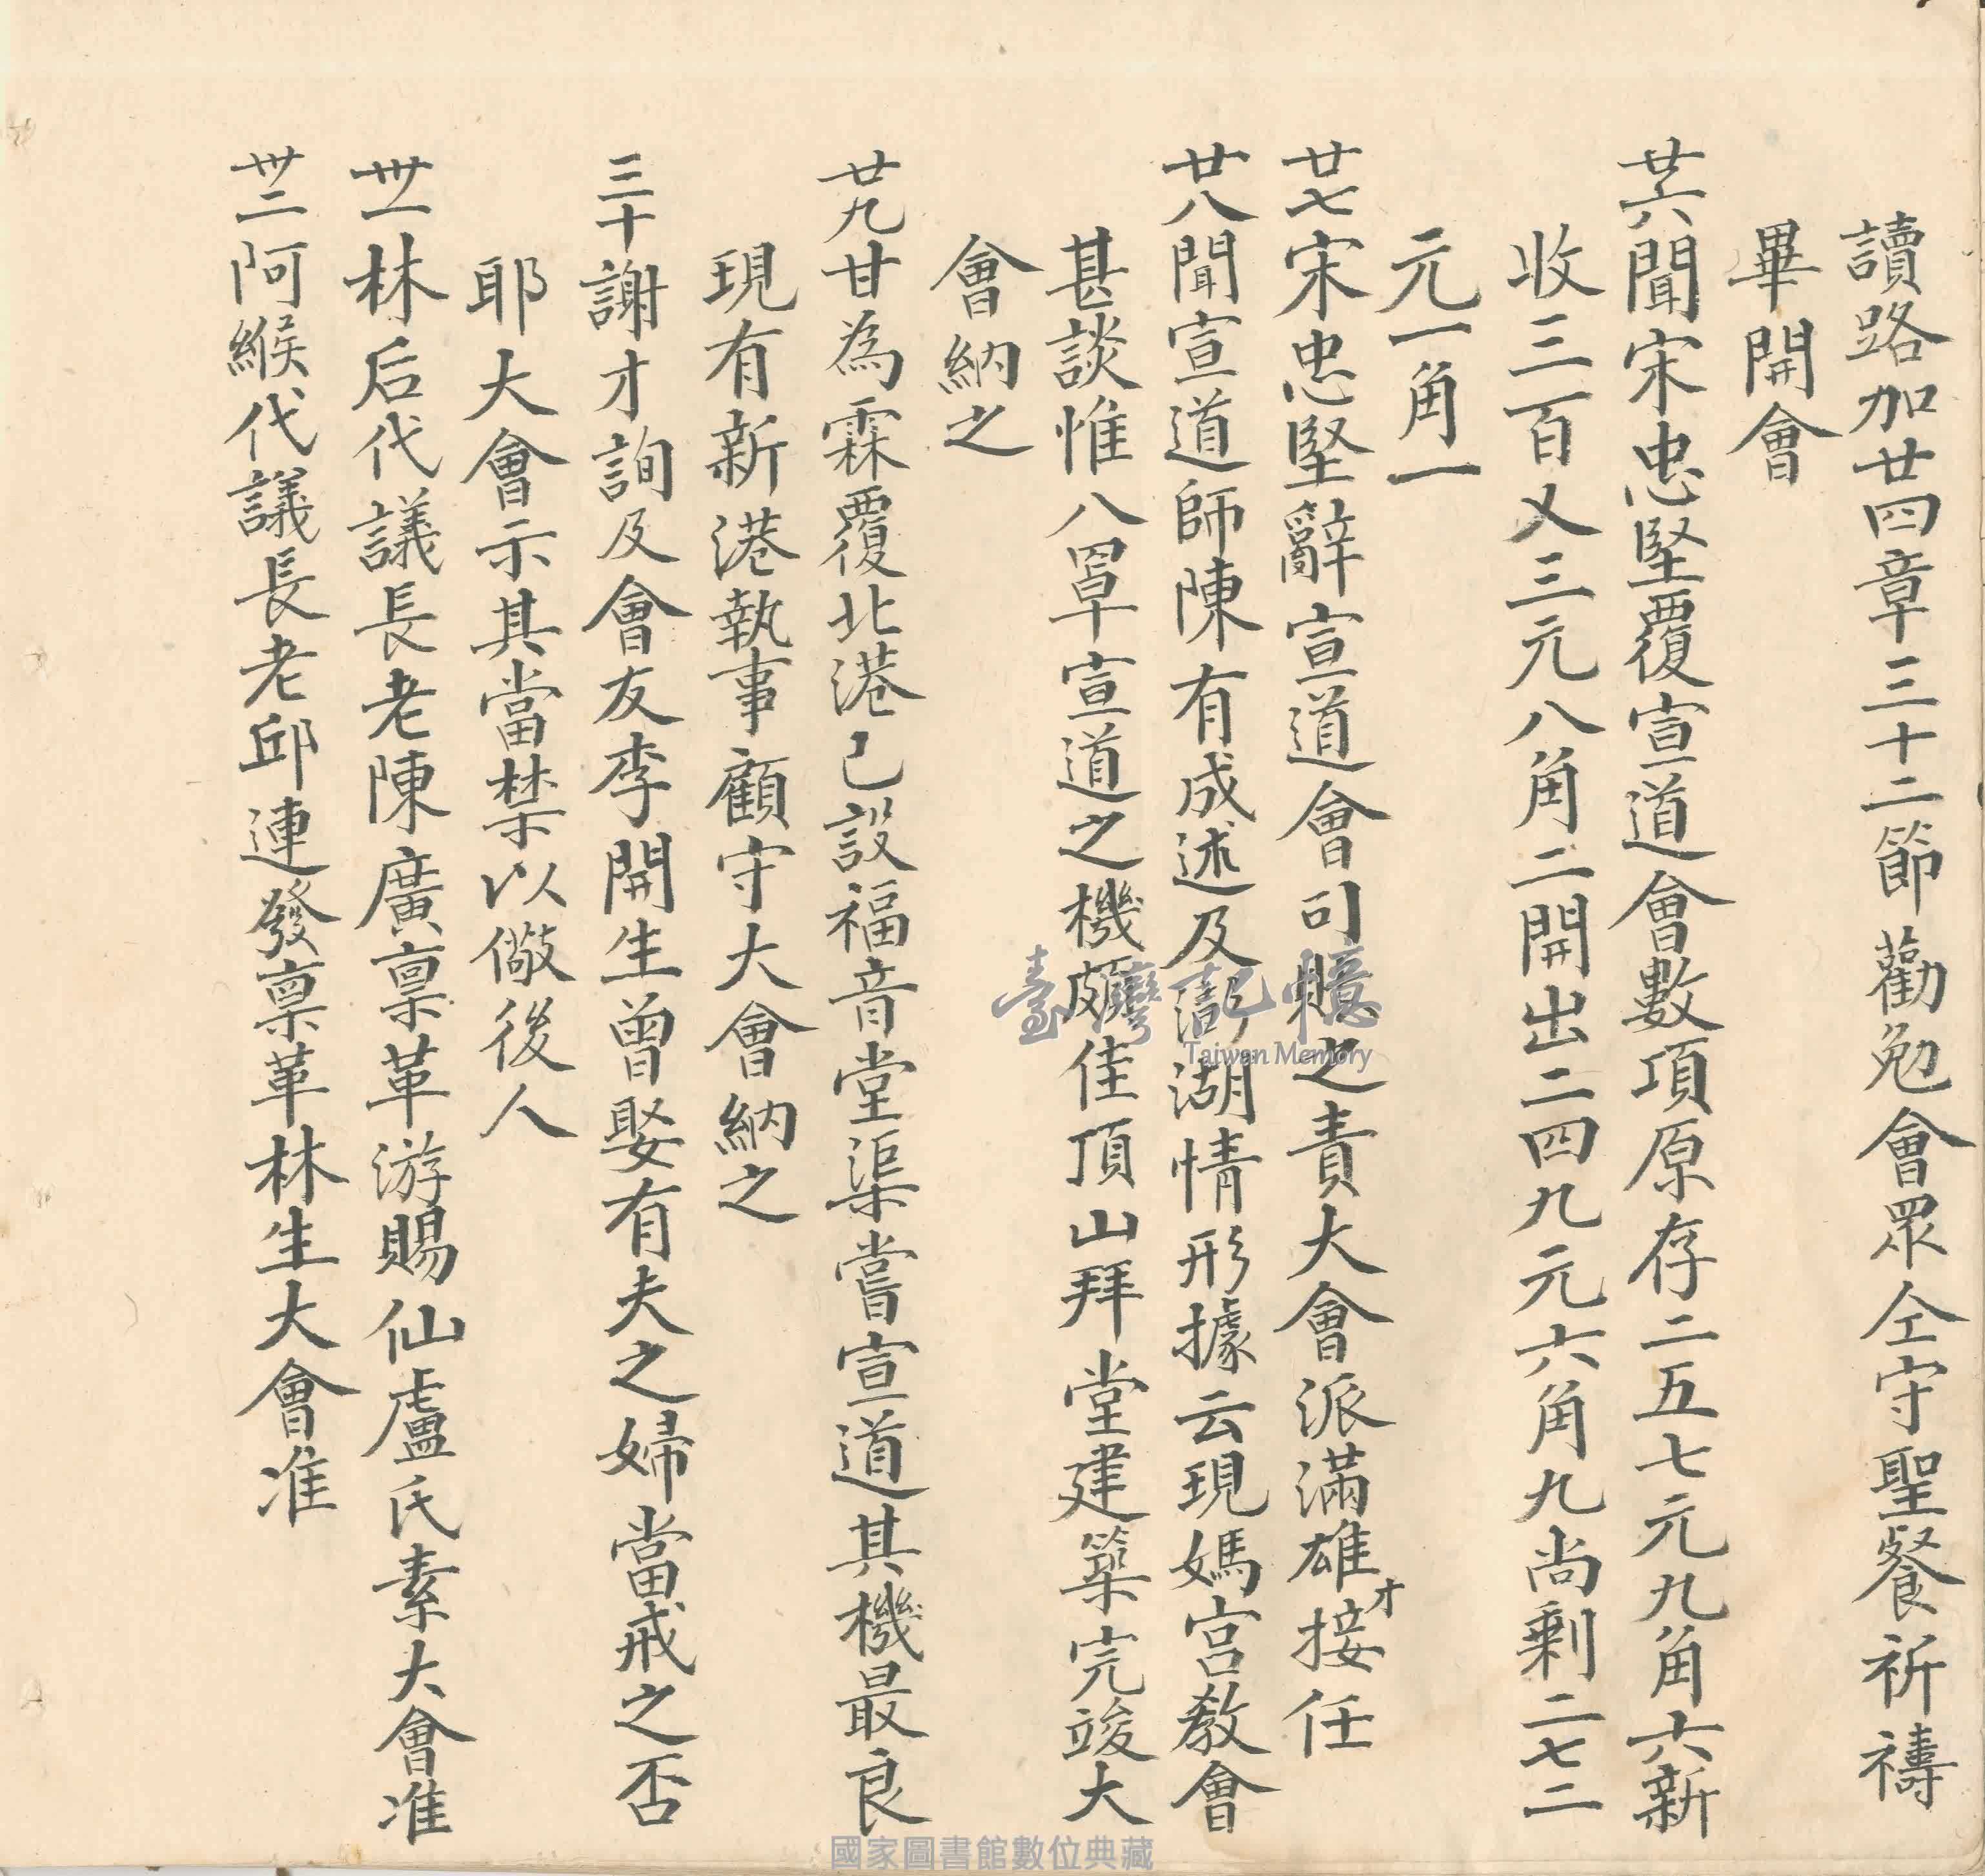 讀路加廿四章三十二節勸勉會眾仝守聖餐祈禱
畢開會
廿六聞宋忠堅覆宣道會數項原存二五七元九角六新
收三百㐅三元八角二開出二四九元六角九尚剩二七二
元一角一
廿七宋忠堅辭宣道會司賬之責大會派滿雄才接任
廿八聞宣道師陳有成述及澎湖情形據云現媽宮教會
甚談惟八罩宣道之機頗佳頂山拜堂建築完竣大
會納之
廿九甘為霖覆北港已設福音堂渠嘗宣道其機最良
現有新港執事顧守大會納之
三十謝才詢及會友李開生曾娶有夫之婦當戒之否
耶大會示其當禁以儆後人
卅一林后代議長老陳廣稟革游賜仙盧氏素大會准
卅二阿緱代議長老邱連發稟革林生大會准
臺灣記憶
Taiwan Memory
國家圖書館數位典藏